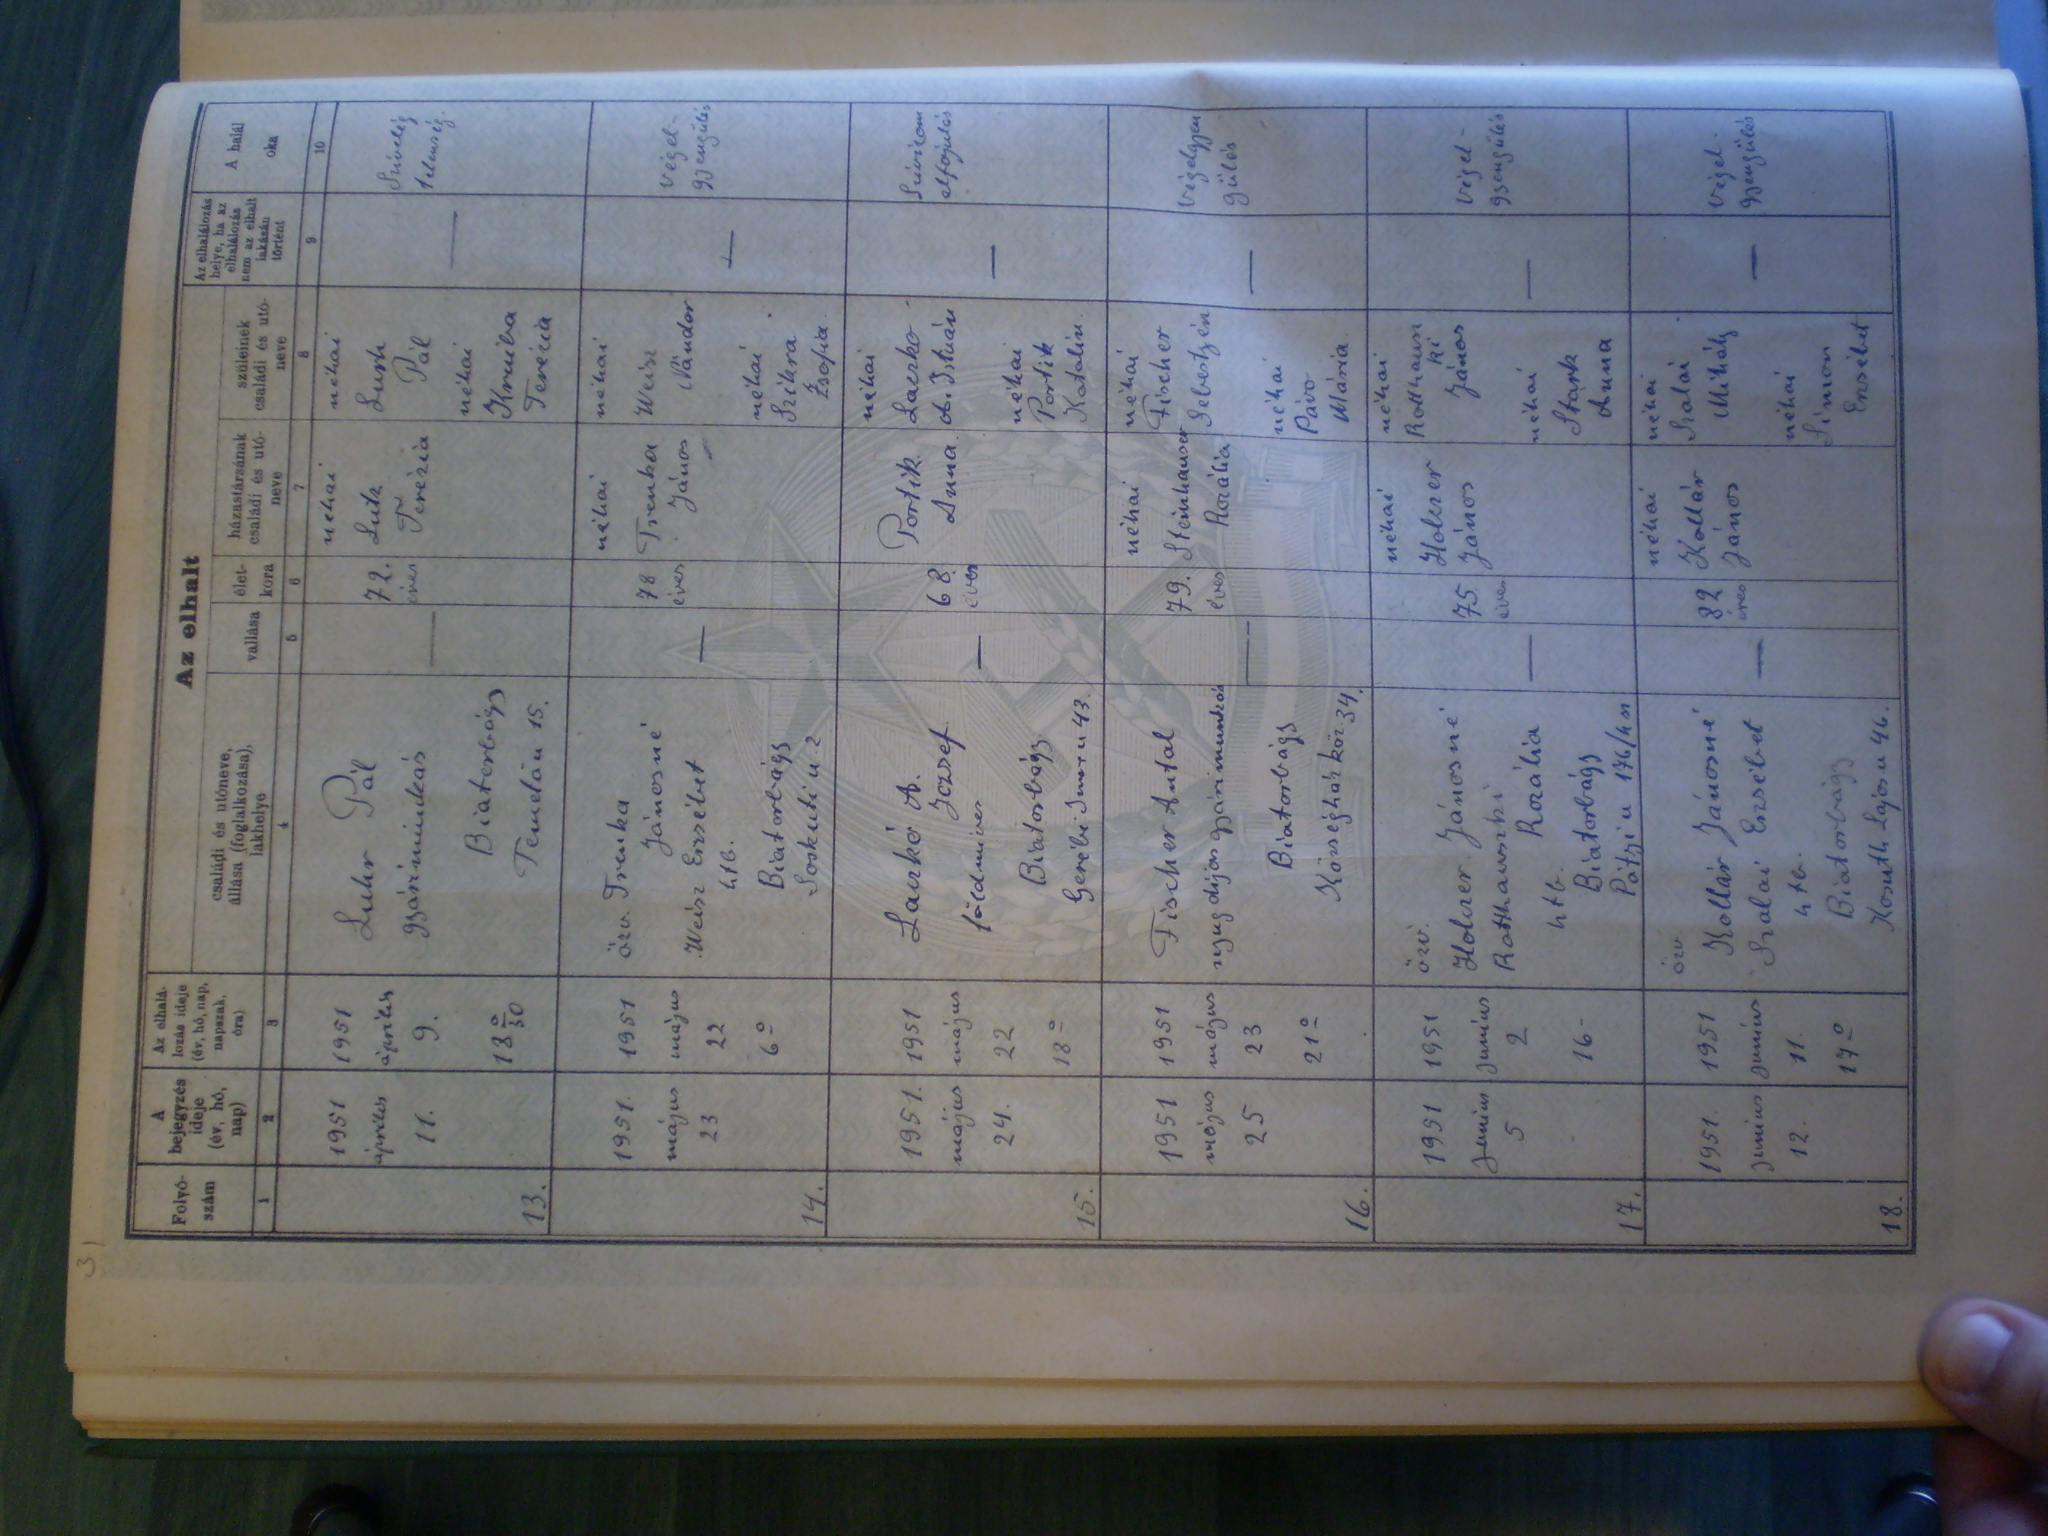 3)
Az elhalt
Folyó-
szám
A
bejegyzés
ideje
(év, hó,
nap)
Az elhalá-
lozás ideje
(év, hó, nap,
napszak,
óra)
családi és utóneve,
állása (foglalkozása),
lakhelye
vallása
élet-
kora
házastársának
családi és utó-
neve
szüleinek
családi és utó-
neve
Az elhalálozás
helye, ha az
elhalálozás
nem az elhalt
lakásán
történt
A halál
oka
1
2
3
4
5
6
7
8
9
10
13.
1951
április
11.
1951
április
9.
18 30
Luhr Pál
Biatorbágy
Temető u 15.
—
72.
éves
néhai
Lutz
Terézia
néhai
Pál
néhai
Terézia
—
Szívelég
telenség.
14.
1951.
május
23
1951
május
22
6 o
özv. Trenka
Jánosné
Weisz Erzsébet
htb.
Biatorbágy
—
78
éves
néhai
Trenka
János
néhai
Weisz
Nándor
néhai
Szikra
Zsófia
—
végel-
gyengülés
15.
1951.
május
24.
1951
május
22
18 o
Laczkó A.
József
földmíves
Biatorbágy
—
68.
éves
Portik
Anna
néhai
Laczkó
A. István
néhai
Portik
Katalin.
—
16.
1951
május
25
1951
május
23
21 o
Fischer Antal
nyugdíjas gyári munkás
Biatorbágy
Községház köz 34.
—
79.
éves
néhai
Steinhauser
Rozália
néhai
Fischer
Sebestyén
néhai
Mária
—
végelgyen
gülés
17.
1951
június
5
1951
június
2
16 -
özv.
Holczer Jánosné
Rotthauszki
Rozália
htb.
Biatorbágy
—
75
éves
néhai
Holczer
János
néhai
Rotthausz
ki
János
néhai
Stark
Anna
—
végel-
gyengülés
18.
1951.
június
12.
1951
június
11.
17 o
özv.
Kollár Jánosné
Szalai Erzsébet
htb.
Biatorbágy
Kossuth Lajos u 46.
—
82
éves
néhai
Kollár
János
néhai
Szalai
Mihály
néhai
Simon
Erzsébet
—
végel-
gyengülés